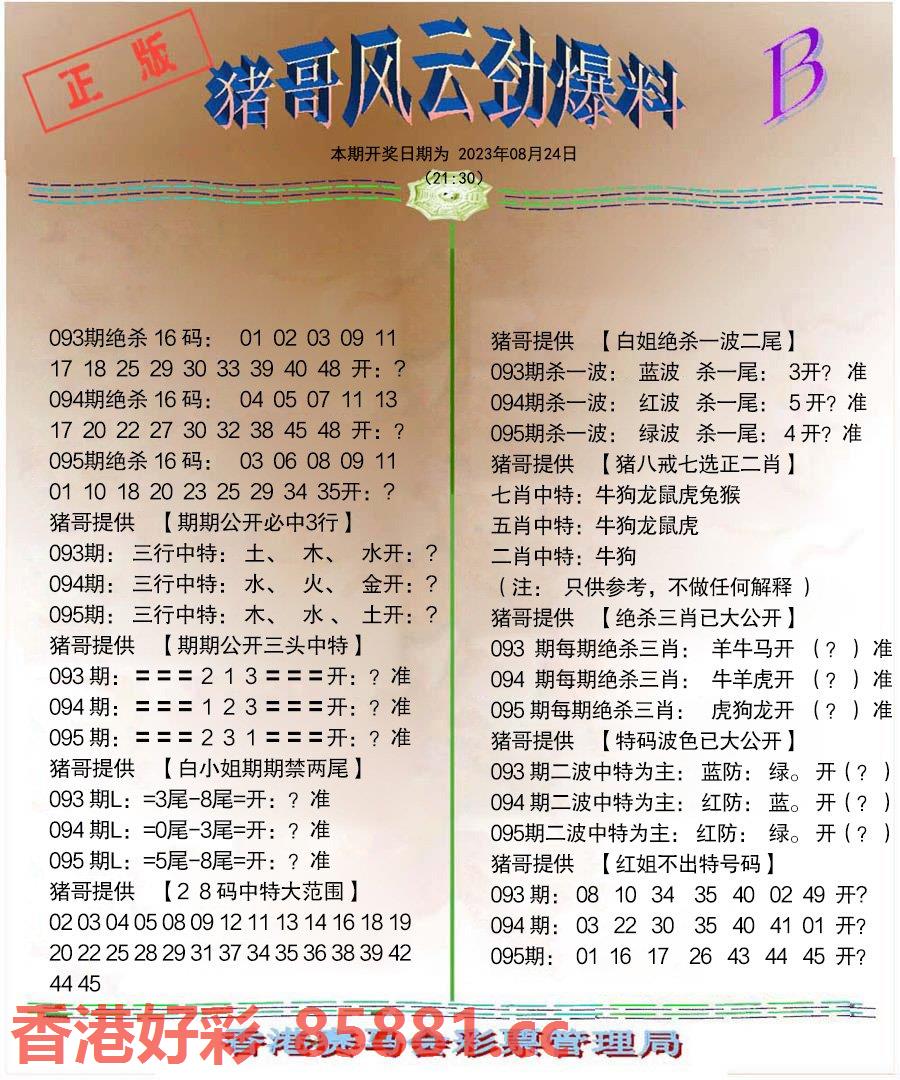 正版
猪哥风云劲爆料
B
本期开奖日期为 2023年08月24日
(21:30)
093期绝杀 16 码： 01 02 03 09 11
17 18 25 29 30 33 39 40 48 开：？
094期绝杀 16 码： 04 05 07 11 13
17 20 22 27 30 32 38 45 48 开：？
095期绝杀 16 码： 03 06 08 09 11
01 10 18 20 23 25 29 34 35开：？
猪哥提供 【期期公开必中3行】
093期： 三行中特： 土、 木、 水开：？
094期： 三行中特： 水、 火、 金开：？
095期： 三行中特： 木、 水 、 土开：？
猪哥提供 【期期公开三头中特】
093 期：＝＝＝２１３＝＝＝开：？准
094 期：＝＝＝１２３＝＝＝开：？准
095 期：＝＝＝２３１＝＝＝开：？准
猪哥提供 【白小姐期期禁两尾】
093 期L：=3尾-8尾=开：？准
094 期L：=0尾-3尾=开：？准
095 期L：=5尾-8尾=开：？准
猪哥提供 【２８码中特大范围】
02 03 04 05 08 09 12 11 13 14 16 18 19
20 22 25 28 29 31 37 34 35 36 38 39 42
44 45
猪哥提供 【白姐绝杀一波二尾】
093期杀一波： 蓝波 杀一尾： 3开？ 准
094期杀一波： 红波 杀一尾： 5 开？准
095期杀一波： 绿波 杀一尾： 4 开？准
猪哥提供 【猪八戒七选正二肖】
七肖中特：牛狗龙鼠虎兔猴
五肖中特：牛狗龙鼠虎
二肖中特：牛狗
（注： 只供参考，不做任何解释 ）
猪哥提供 【绝杀三肖已大公开】
093 期每期绝杀三肖： 羊牛马开 （？ ）准
094 期每期绝杀三肖： 牛羊虎开 （？ ）准
095 期每期绝杀三肖： 虎狗龙开 （？ ）准
猪哥提供 【特码波色已大公开】
093 期二波中特为主： 蓝防： 绿。 开（？ ）
094 期二波中特为主： 红防： 蓝。 开（？ ）
095期二波中特为主： 红防： 绿。 开（？ ）
猪哥提供 【红姐不出特号码】
093 期： 08 10 34 35 40 02 49 开?
094 期： 03 22 30 35 40 41 01 开?
095期： 01 16 17 26 43 44 45 开?
香港好彩 85881.cc
香港赛马会彩票管理局